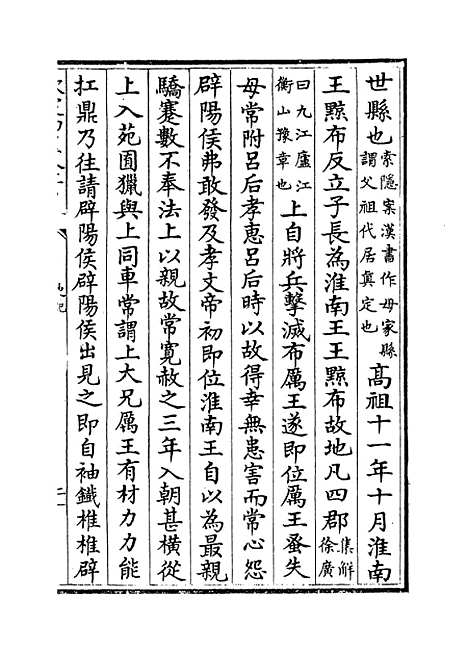 世縣也索隱案漢書作母家縣謂父祖代居真定也高祖十一年十月淮南
王黥布反立子長為淮南王王黥布故地凡四郡集解徐廣
曰九江廬江衡山豫章也上自將兵擊滅布厲王遂即位厲王蚤失
母常附吕后孝惠吕后時以故得幸無患害而常心怨
辟陽侯弗敢發及孝文帝初即位淮南王自以為最親
驕蹇數不奉法上以親故常寛赦之三年入朝甚橫從
上入苑囿獵與上同車常謂上大兄厲王有材力力能
扛鼎乃往請辟陽侯辟陽侯出見之即自袖鐵椎椎辟
史記